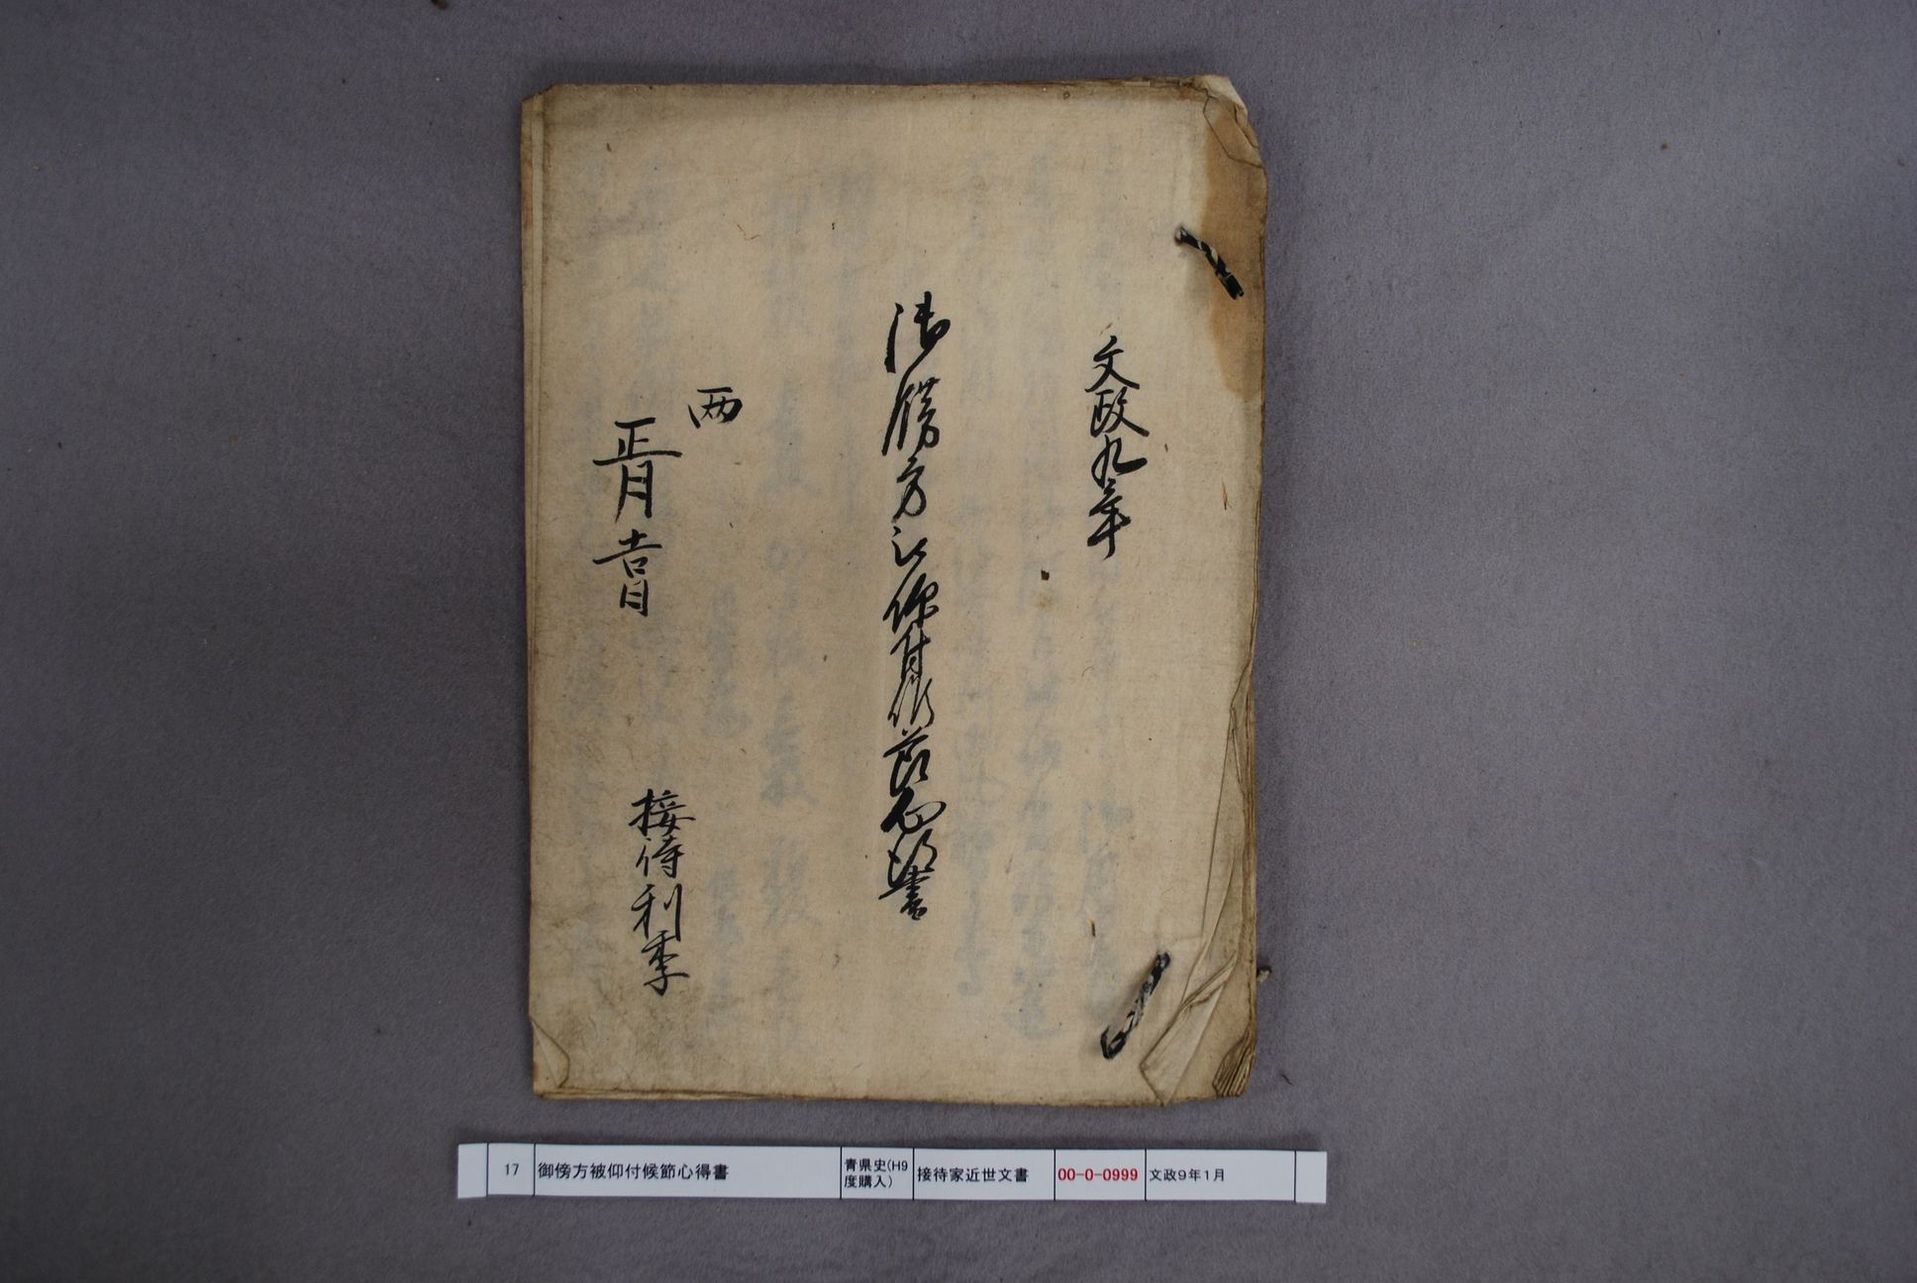 文政九年
御膳方被仰付候節心得書
丙
正月吉日
接待利季
17 御傍方被仰付候節心得書 青県史(H9度購入) 接待家近世文書 00-0-0999 文政9年1月